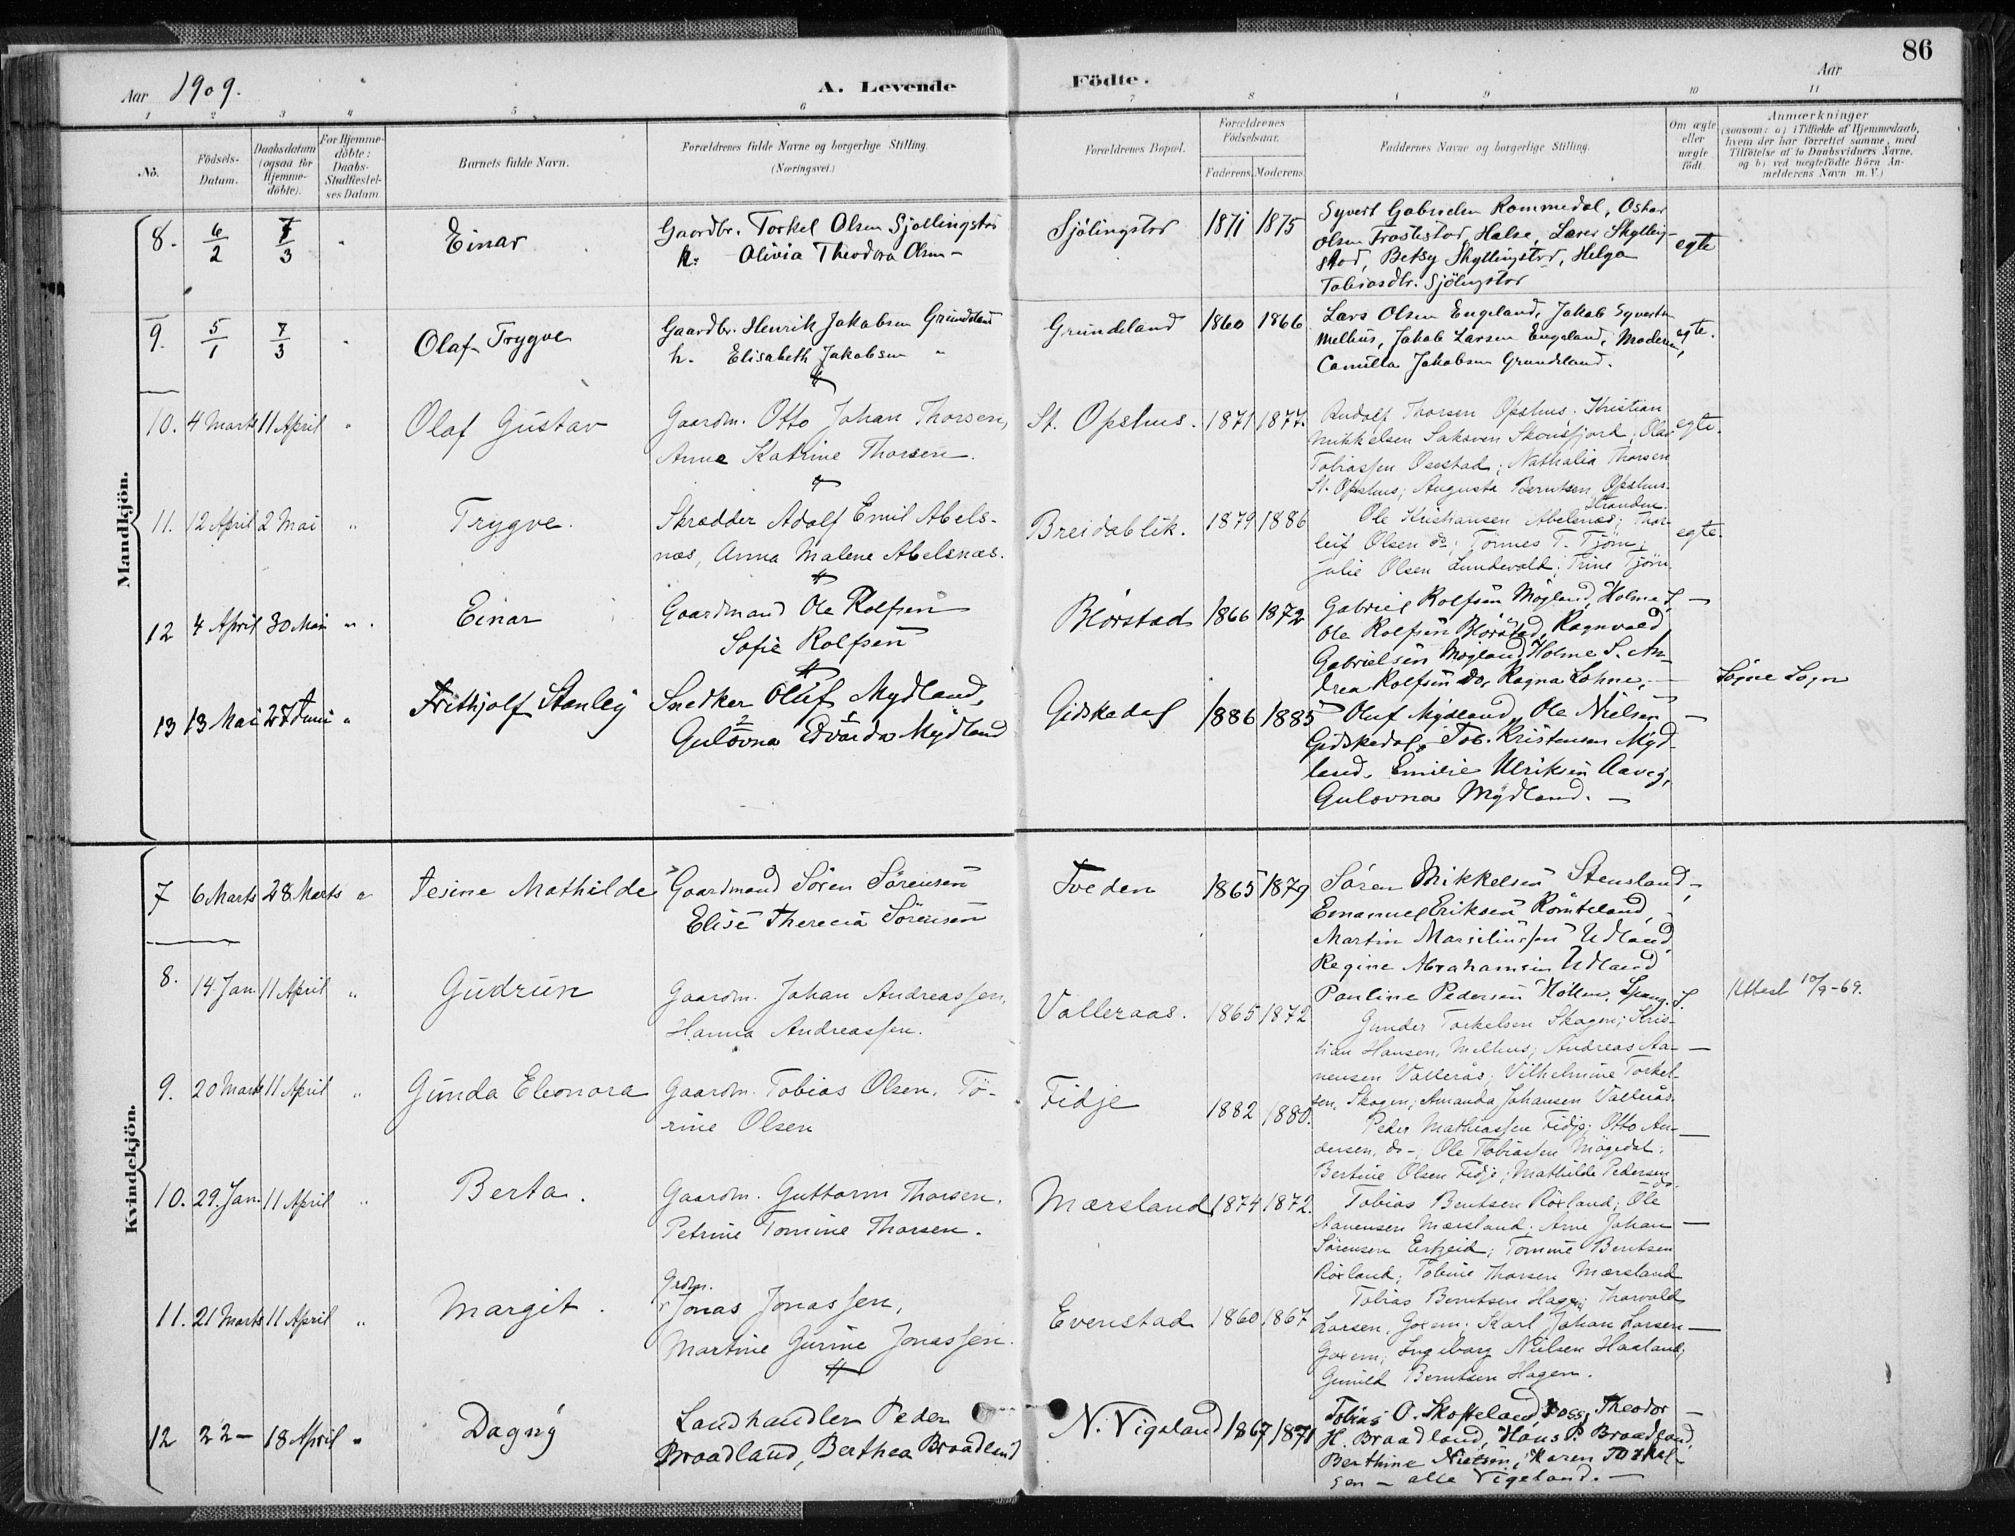 86
Aar 1909.
A. Levende
Födte.
Aar
1 2 3 4 5 6 7 8 9 10 11
No.
Födsels-
Datum.
Daabsdatum
(ogsaa for
Hjemme-
döbte).
For Hjemme-
döbte:
Daabs-
Stadfæstel-
ses Datum
Barnets fulde Navn.
Forældrenes fulde Navne og borgerlige Stilling.
(Næringsvei.)
Forældrenes Bopæl.
Forældrenes
Födselsaar.
Faderens. Moderens.
Faddernes Navne og borgerlige Stilling.
Om ægte
eller
uægte
födt.
Anmærkninger
(saasom: a) i Tilfælde af Hjemmedaab,
hvem der har forrettet samme, med
Tilföielse af to Daabsvidners Navne,
og b) ved uægtefödte Börn An-
melderens Navn m. V.)
Mandkjön.
8. 6/2 7/3 " Einar
Gaardbr. Torkel Olsen Sjøllingstad
h. Olivia Theodora Olsen -
Sjölingstad 1871 1875
Syvert Gabrielsen Rommedal, Oskar
Olsen Trostestad, Halse, Lærer Skylling
stad, Betsy Skyllingstad, Helga
Tobiasdtr. Sjölingstad
egte
9. 5/1 7/3 " Olaf Trygve
Gaardbr. Henrik Jakobsen Grundeland
h. Elisabeth Jakobsen "
Grundeland 1860 1866
Lars Olsen Engeland, Jakob Syvertsen
Melhus, Jakob Larsen Engeland, Moderen,
Camilla Jakobsen Grundeland.
egte.
10. 4 Marts 11 April " Olaf Gustav
Gaardm. Otto Johan Thorsen,
Anne Katrine Thorsen.
St. Opshus. 1871 1877.
Rudolf Thorsen Opshus. Kristian
Mikkelsen Sakaven Skonsfjord; Olav
Tobiassen Osestad; Nathalia Thorsen
St. Opshus; Augusta Berntsen Opshus.
egte.
11. 12 April 2 Mai " Trygve.
Skrædder Adolf Emil Abels-
næs, Anna Malene Abelsnæs.
Breidablik. 1879 1886
Stranden.
Ole Kristiansen Abelsnæs; Thor-
leif Olsen do; Tønnes T. Tjøm;
Julie Olsen Lundevold; Trine Tjöm
egte.
12 4 April 30 Mai " Einar
Gaardmand Ole Rolfsen
Sofie Rolfsen
Blörstad 1866 1872
Gabriel Rolfsen Mögland, Holme S,
Ole Rolfsen Blörstad, Ragnvald
Gabrielsen Mögland Holme S. An-
drea Rolfsen do, Ragna Lohne, -
Søgne Sogn
13 13 Mai 27 Juni " Frithjolf Stanley
Snedker Oluf Mydland,
Gulovna Edvarda Mydland
Gidskedal 1886 1885
Oluf Mydland, Ole Nielsen
Gidskedal, Tob. Kristensen Myd-
land, Emilie Ulriksen Aaveg,
Gulovna Mydland. -
Kvindekjön.
7 6 Marts 28 Marts " Jesine Mathilde
Gaardmand Sören Sörensen
Elise Therecia Sörensen
Tveden 1865 1879
Søren Mikkelsen Stensland,
Emanuel Eriksen Römteland,
Martin Marsiliussen Udland
Regine Abrahamsen Udland
Pauline Pedersen Höllen, Spang. S.
8. 14 Jan. 11 April " Gudrun
Gaardm. Johan Andreassen,
Hanna Andreassen.
Valleraas. 1865 1872
Gunder Torkelsen Skagen; Kris-
tian Hansen, Melhus; Andreas Aa-
nensen Vallerås; Vilhelmine Torkel-
sen, Skagen; Amanda Johansen Vallerås.
Attest 10/9-69.
9. 20 Marts 11 April " Gunda Eleonora
Gaardm. Tobias Olsen, Tö-
rine Olsen
Fidje 1882 1880.
Peder Mathiassen Fidje; Otto An-
dersen, do -; Ole Tobiassen Mögedal;
Bertine Olsen Fidje; Mathilde Pedersen do.
10. 29. Jan. 11 April " Berta.
Gaardm. Guttorm Thorsen.
Petrine Tomine Thorsen.
Mærsland 1874 1872.
Tobias Bentsen Röxland; Ole
Aanensen Mærsland; Arne Johan
Sörensen Erkjeid; Tomine Bentsen
Röxland; Tobine Thorsen Mærsland
11. 21 Marts 11 April " Margit.
Grdm.
Jonas Jonassen,
Martine Gurine Jonassen.
Evenstad 1860 1867
Tobias Berntsen Hagen; Thorvald
Larsen, Goxem; Karl Johan Larsen
Goxem; Ingeborg Nielsen Haaland;
Gunild Berntsen Hagen.
12 22 - 18 April " Dagny
Landhandler Peder
Braadland, Berthea Braadland
N. Vigeland 1867 1871
Tobias O. Skofteland, Theodor
H. Braadland, Hans P. Braadland,
Berthine Nielsen, Karen Torkel-
sen - alle Vigeland. -